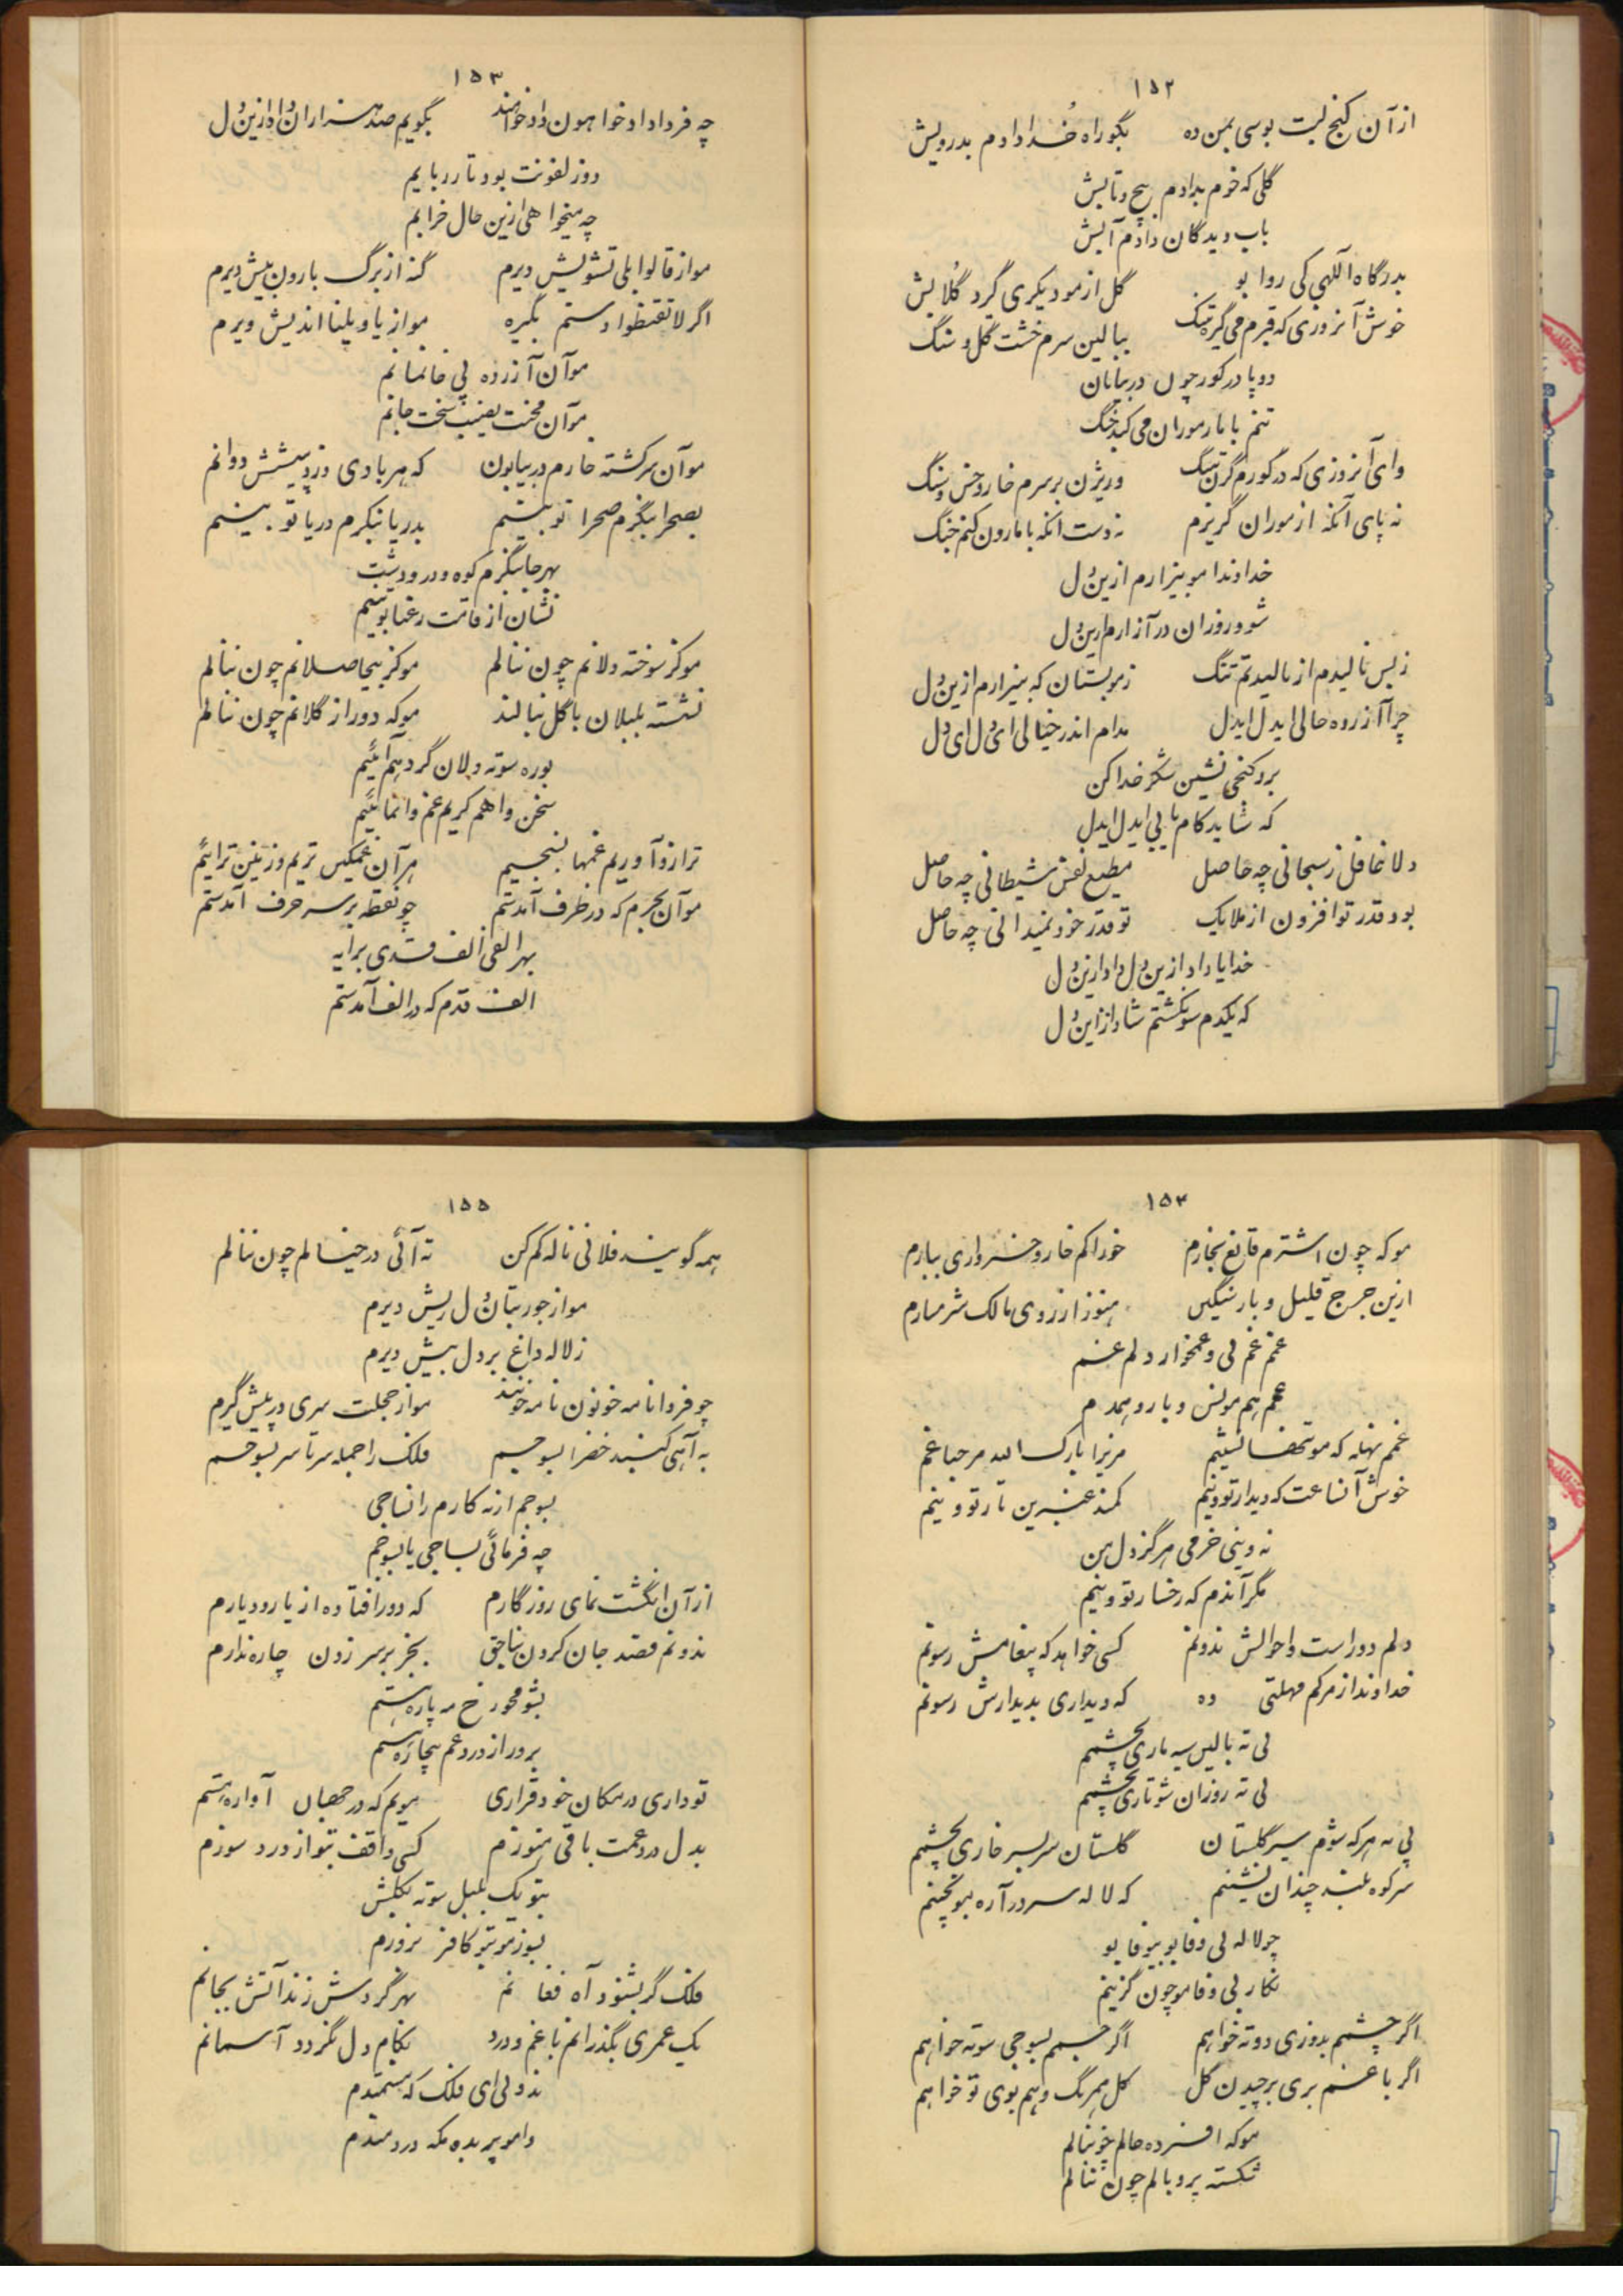 ۱۵۲
از آن کنج لبت بوسی بمن ده بگو راه خدا دادم بدرویش
گلی که خوم بدادم پیچ و تابش
باب دیدگان دادم آبش
بدرگاه آللهی کی روا بو گل از مو دیگری گیرد گلابش
خوش آنروزی که قبرم می گیره تنگ ببالین سرم خشت گل و سنگ
دو پا در کور چون در بیابان
تنم با مار موران می کند جنگ
وای آنروزی که در گورم گرن تنگ وریژن بر سرم خار و خس و سنگ
نه پای آنکه از موران گریزم نه دست انکه با مارون کنم جنگ
خداوندا مو بیزارم ازین دل
شو و روزان در آزارم ازین دل
ز بس نالیدم از نالیدنم تنگ ز مو بستان که بیزارم ازین دل
چرا آزرده حالی ایدل ایدل مدام اندر خیالی ای دل ای دل
برو کنجی نشین شکر خدا کن
که شاید کام یابی ایدل ایدل
دلا غافل ز سبحانی چه حاصل مطیع نفس شیطانی چه حاصل
بود قدر تو افزون از ملایک تو قدر خود نمیدانی چه حاصل
خدایا داد ازین دل داد ازین دل
که یکدم مو نگشتم شاد از این دل
۱۵۳
چه فردا داد خواهون داد خواهند بگویم صد هزاران داد ازین دل
دو زلفونت بود تار ربابم
چه میخواهی ازین حال خرابم
مو از قالوا بلی تشویش دیرم گنه از برگ بارون بیش دیرم
اگر لا تقنطوا دستم نگیره مو از یا ویلنا اندیش دیرم
مو آن آزرده بی خانمانم
مو آن محنت نصیب سخت جانم
مو آن سرگشته خارم در بیابون که هر بادی وزد پیشش دوانم
بصحرا بنگرم صحرا تو بینم بدریا بنگرم دریا تو بینم
بهر جا بنگرم کوه و در و دشت
نشان از قامت رعنا تو بینم
مو کز سوخته دلانم چون ننالم مو کز بیحاصلانم چون ننالم
نشسته بلبلان با گل بنالند مو که دور از گلانم چون ننالم
بوره سوته دلان گرد هم آئیم
سخن وا هم کریم غم وا نمائیم
ترازو آوریم غمها بسنجیم هر آن غمگین تریم وزنین ترائیم
مو آن بحرم که در ظرف آمدستم چو نقطه بر سر حرف آمدستم
بهر الفی الف قدی بر آیه
الف قدم که در الف آمدستم
۱۵۴
مو که چون اشترم قانع بخارم خوراکم خار و خرواری ببارم
ازین خرج قلیل و بار سنگین هنوز از روی مالک شرمسارم
غمم غم بی و غمخوار دلم غم
غمم هم مونس و یار و همدم
غمم نهله که مو تنها نشینم مریزا بارک الله مرحبا غم
خوش آنساعت که دیدار تو وینم کمند عنبرین تار تو وینم
نه وینی خرمی هرگز دل من
مگر آندم که رخسار تو وینم
دلم دور است و احوالش ندونم کسی خواهد که پیغامش رسونم
خداوندا ز مرگم مهلتی ده که دیداری بدیدارش رسونم
بی ته بالین سیه ماری بچشمم
بی ته روزان شو تاری بچشمم
بی ته هر که شوم سیر گلستان گلستان سر بسر خاری بچشمم
سر کوه بلند چندان نشینم که لاله سر در آره مو بچینم
چو لاله بی وفا بو بیوفا بو
نگار بی وفا مو چون گزینم
اگر چشمم بدوزی دوته خواهم اگر جسمم بسوجی سوته خواهم
اگر با غم بری بر چیدن گل گل همرنگ و هم بوی تو خواهم
مو که افسرده حالم چو ننالم
شکسته پر و بالم چون ننالم
۱۵۵
همه گویند فلانی ناله کم کن ته آئی در خیالم چون ننالم
مو از جور بتان دل ریش دیرم
ز لاله داغ بر دل بیش دیرم
چو فردا نامه خونون نامه خونند مو از خجلت سری در پیش گیرم
به آهی گنبد خضرا بسوجیم فلک را جمله سر تا سر بسوجم
بسوجم ارنه کارم را نساجی
چه فرمائی بساجی یا بسوجم
از آن انگشت نمای روزگارم که دور افتاده از یار و دیارم
ندونم قصد جان کردن بناحق بجز بر سر زدن چاره ندارم
بشو محو رخ مه پاره هستم
بروز از درد غم بیچاره هستم
تو داری در مکان خود قراری مویم که در جهان آواره هستم
بدل درد غمت باقی هنوزم کسی واقف نبو از درد سوزم
نبو یک بلبل سوته بگلشن
بسوز مو نبو کافر بروزم
فلک گر بشنود آه فغانم بهر گردش زند آتش بجانم
یک عمری بگذرانم با غم و درد بکام دل نگردد آسمانم
ندونی ای فلک که مستمندم
وامو پر بده مکه دردمندم